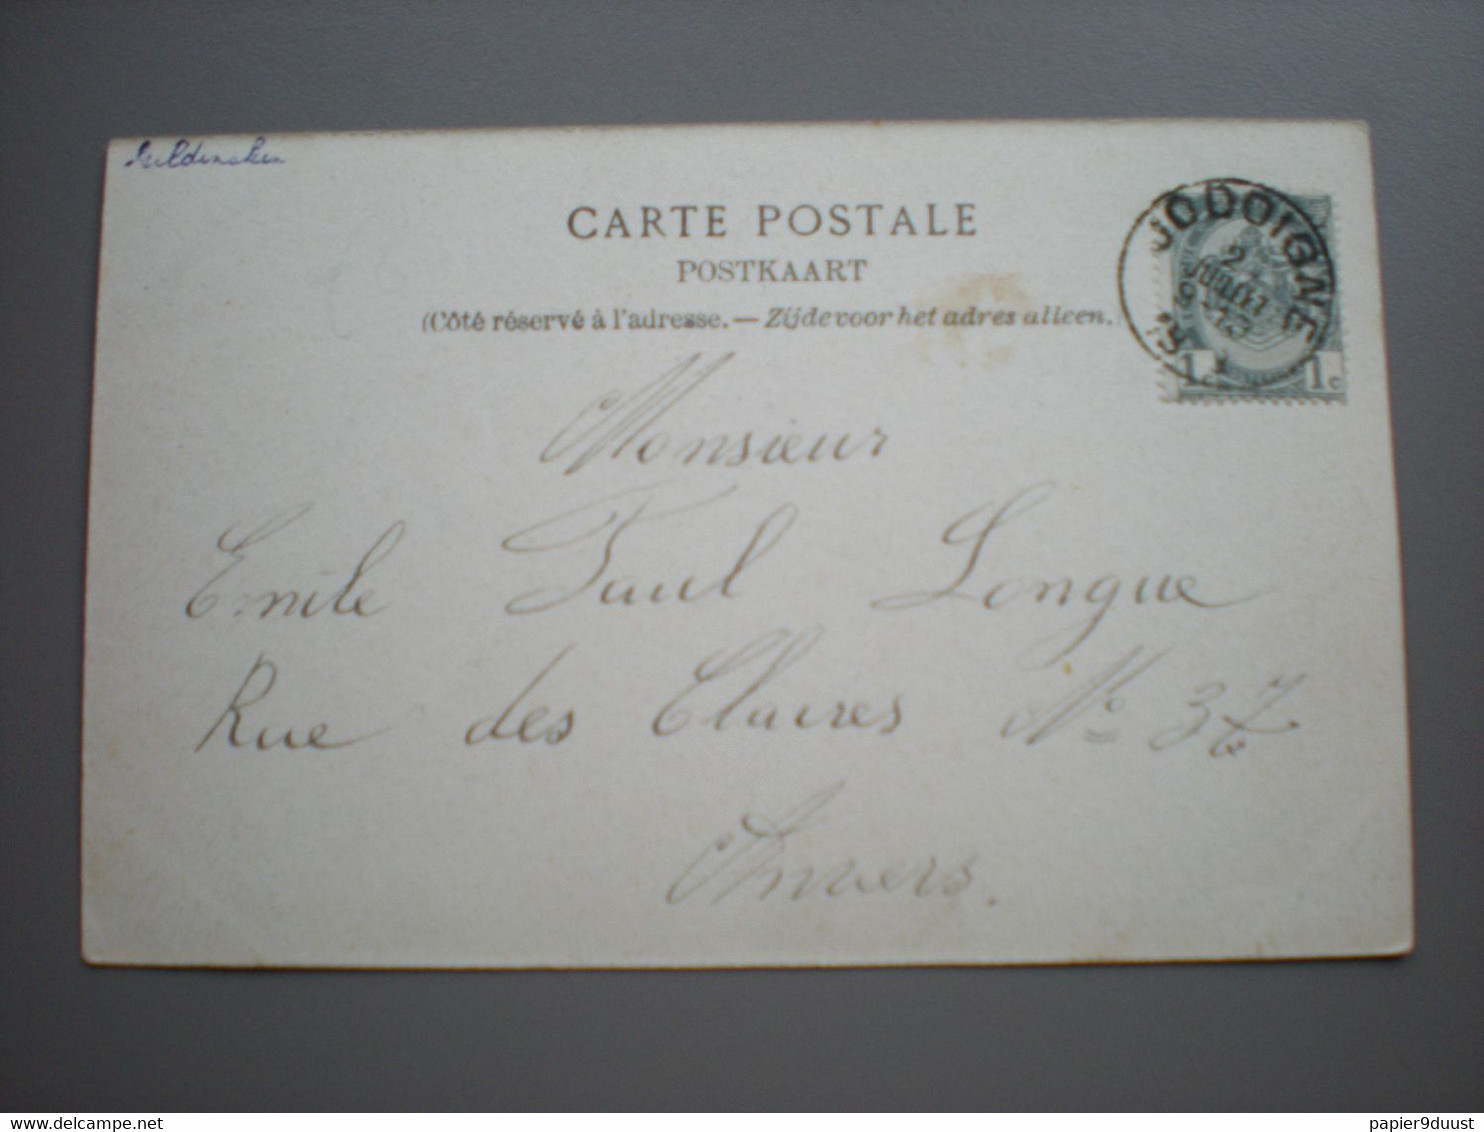 Geldenaken
CARTE POSTALE
POSTKAART
(Côté réservé à l'adresse. — Zijde voor het adres alleen.
JODOIGNE
1c 1c
Monsieur
Emile Paul Longue
Rue des Claires No 37
Anvers.
www.delcampe.net
papier9duust